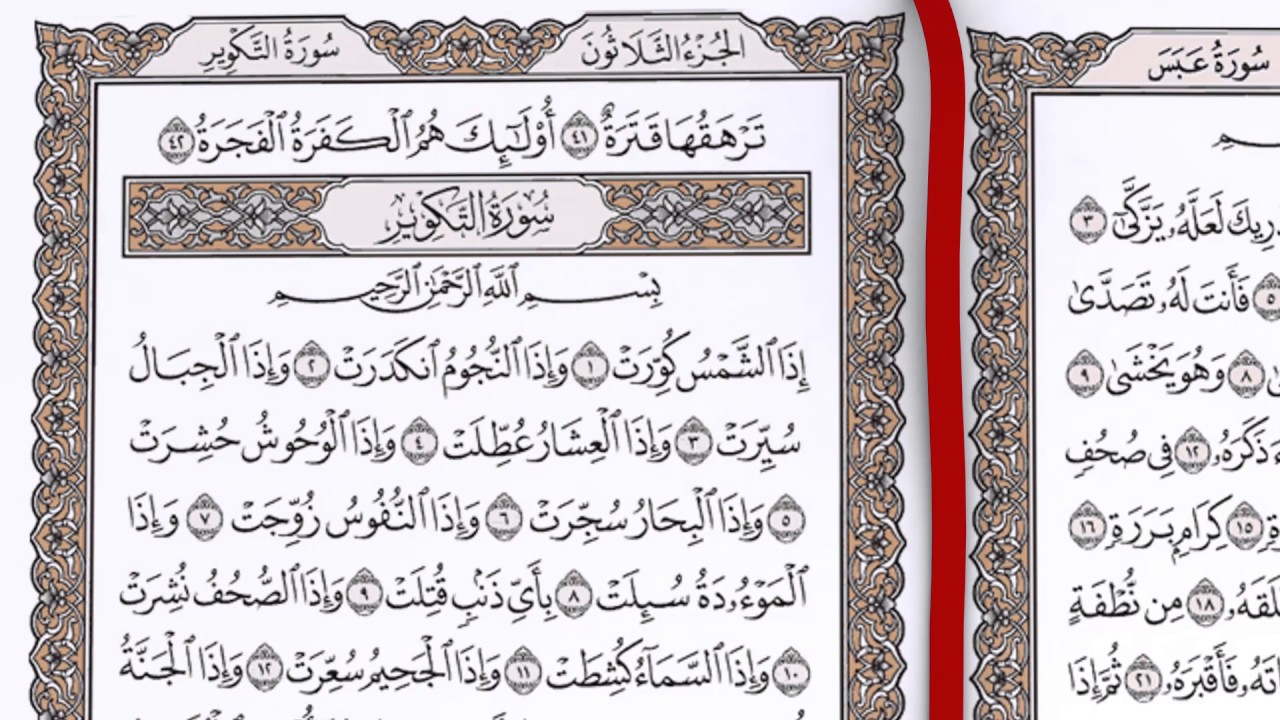 الجُزْءُ الثَّلَاثُونَ
سُورَةُ التَّكْوِيرِ
تَرْهَقُهَا قَتَرَةٌ ٤١ أُوْلَٰٓئِكَ هُمُ ٱلْكَفَرَةُ ٱلْفَجَرَةُ ٤٢
سُورَةُ التَّكْوِيرِ
بِسْمِ ٱللَّهِ ٱلرَّحْمَٰنِ ٱلرَّحِيمِ
إِذَا ٱلشَّمْسُ كُوِّرَتْ ١ وَإِذَا ٱلنُّجُومُ ٱنكَدَرَتْ ٢ وَإِذَا ٱلْجِبَالُ
سُيِّرَتْ ٣ وَإِذَا ٱلْعِشَارُ عُطِّلَتْ ٤ وَإِذَا ٱلْوُحُوشُ حُشِرَتْ
٥ وَإِذَا ٱلْبِحَارُ سُجِّرَتْ ٦ وَإِذَا ٱلنُّفُوسُ زُوِّجَتْ ٧ وَإِذَا
ٱلْمَوْءُۥدَةُ سُئِلَتْ ٨ بِأَيِّ ذَنۢبٍ قُتِلَتْ ٩ وَإِذَا ٱلصُّحُفُ نُشِرَتْ
١٠ وَإِذَا ٱلسَّمَآءُ كُشِطَتْ ١١ وَإِذَا ٱلْجَحِيمُ سُعِّرَتْ ١٢ وَإِذَا ٱلْجَنَّةُ
سُورَةُ عَبَسَ
لَعَلَّهُۥ يَزَّكَّىٰٓ ٣
٥ فَأَنتَ لَهُۥ تَصَدَّىٰ
٨ وَهُوَ يَخْشَىٰ ٩
ذَكَرَهُۥ ١٢ فِي صُحُفٍ
١٥ كِرَامٍۭ بَرَرَةٍ ١٦
١٨ مِن نُّطْفَةٍ
فَأَقْبَرَهُۥ ٢١ ثُمَّ إِذَا